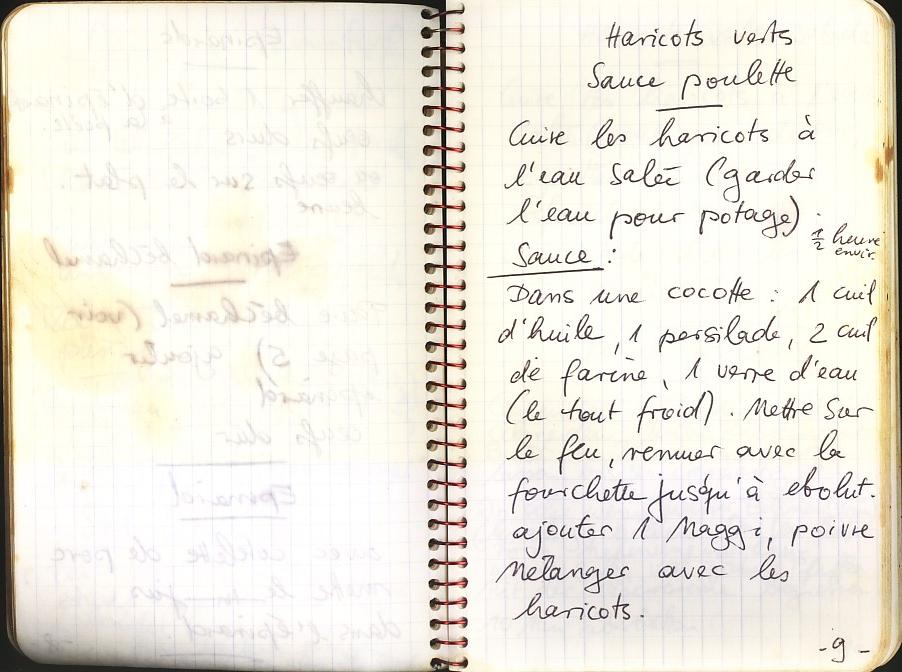 Haricots verts
Sauce poulette
Cuire les haricots à
l'eau salée (garder
l'eau pour potage).
1/2 heure
envir.
Sauce :
Dans une cocotte : 1 cuil
d'huile, 1 persilade, 2 cuil
de farine, 1 verre d'eau
(le tout froid). Mettre sur
le feu, remuer avec la
fourchette jusqu'à ebolut.
ajouter 1 Maggi, poivre
Mélanger avec les
haricots.
- 9 -